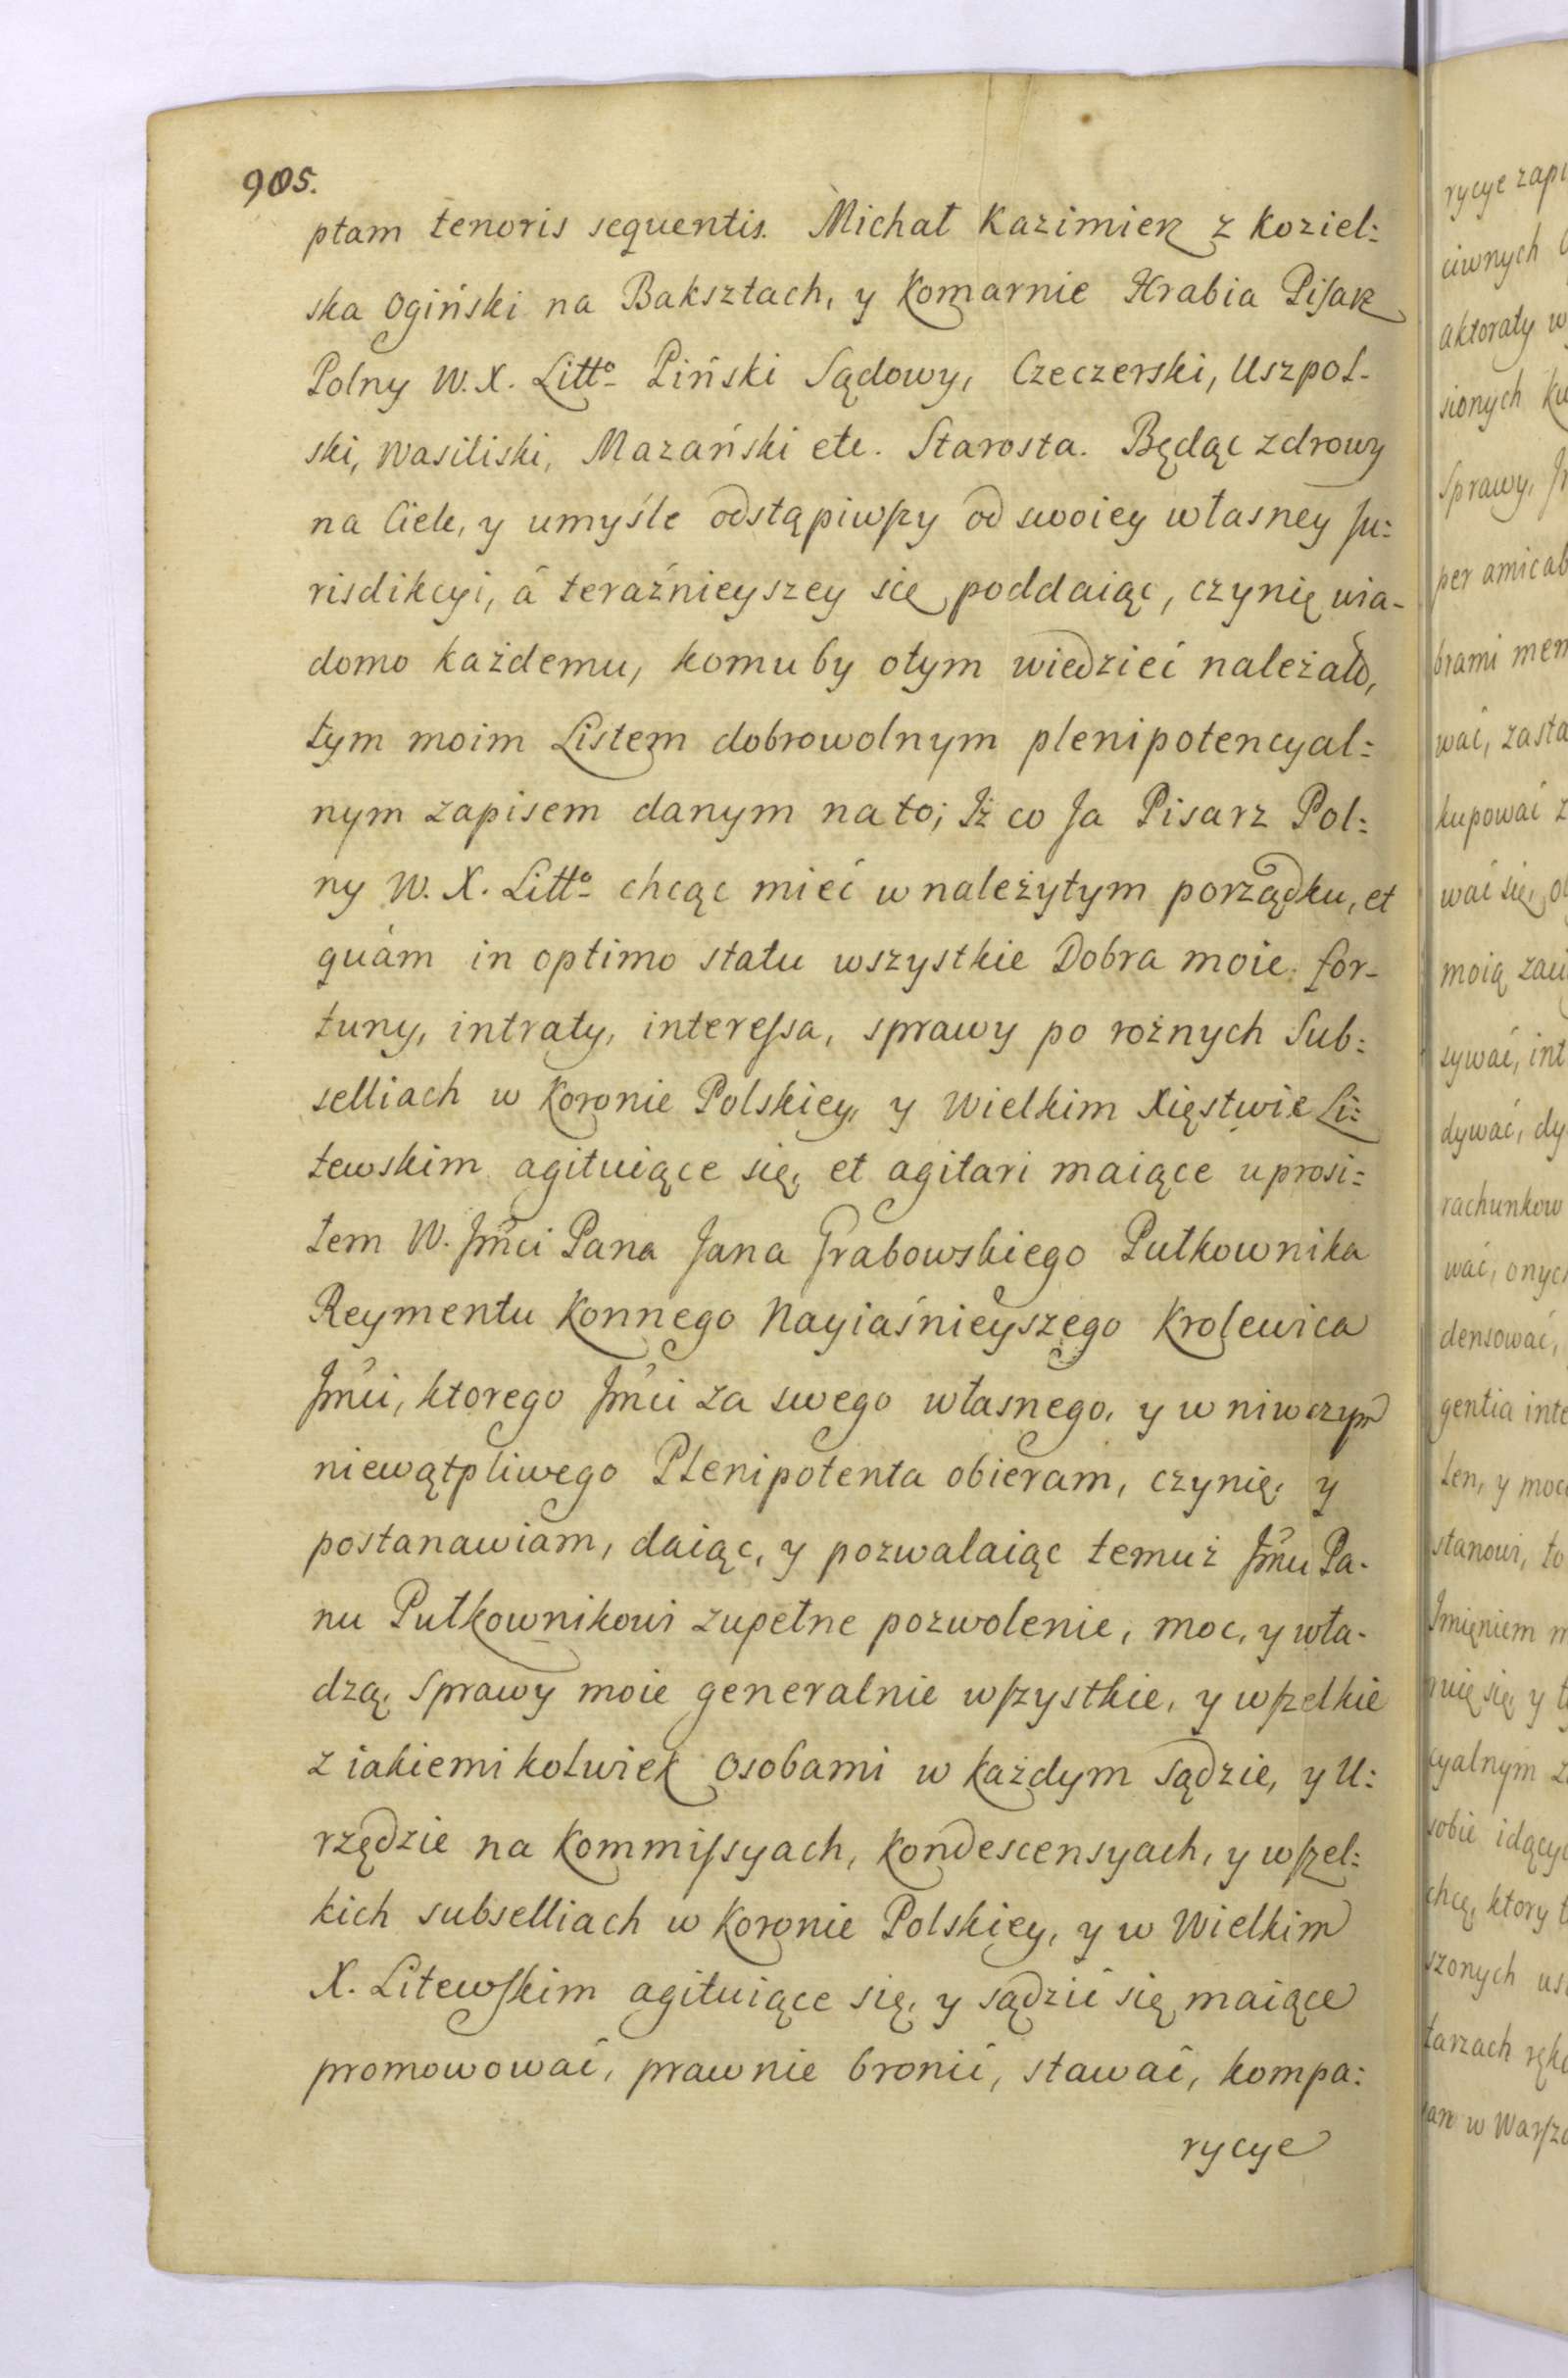 905.
ptam tenoris sequentis. Michał Kazimierz z Koziel:
ska Ogiński na Baksztach, y Komarnie Hrabia Pisarz
Polny W. X. Litto Piński Sądowy, Czeczerski, Uszpol-
ski, Wasiliski, Mazański etc. Starosta. Będąc zdrowy
na Ciele, y umyśle odstąpiwszy od swoiey własney Ju:
risdikcyi, á teraźnieyszey się poddaiąc, czynię wia-
domo każdemu, komu by otym wiedzieć należało,
tym moim Listem dobrowolnym plenipotencyal:
nym zapisem danym na to; Iż co Ja Pisarz Pol:
ny W. X. Litto chcąc mieć w należytym porządku, et
quàm in optimo statu wszystkie Dobra moie. for-
tuny, intraty, interessa, sprawy po rożnych Sub:
selliach w Koronie Polskiey, y Wielkim Xięstwie Li:
tewskim agituiące się, et agitari maiące uprosi:
łem W. Jmći Pana Jana Grabowskiego Pułkownika
Reymentu Konnego Nayiaśnieyszego Krolewica
Jmći, ktorego Jmći za swego własnego, y w niwczym
niewątpliwego Plenipotenta obieram, czynię, y
postanawiam, daiąc, y pozwalaiąc temuż Jmću Pa-
nu Pułkownikowi zupełne pozwolenie, moc, y wła-
dzą, Sprawy moie generalnie wszystkie, y wszelkie
z iakiemikolwiek Osobami w każdym Sądzie, y U:
rzędzie na Kommissyach, Kondescensyach, y wszel:
kich subselliach w Koronie Polskiey, y w Wielkim
X. Litewskim agituiące się, y sądzić się maiące
promowować, prawnie bronić, stawać, kompa:
rycye
rycye
ciwnych
aktoraty
sionych
Sprawy,
per
brami
wać,
kupować
wać się,
moią
sywać,
dywać,
rachunkow
wać,
densować,
gentia
ten, y
stanowi, to
Imięniem
się, y
cyalnym
sobie
chcę, ktory
szonych
tarzach
w